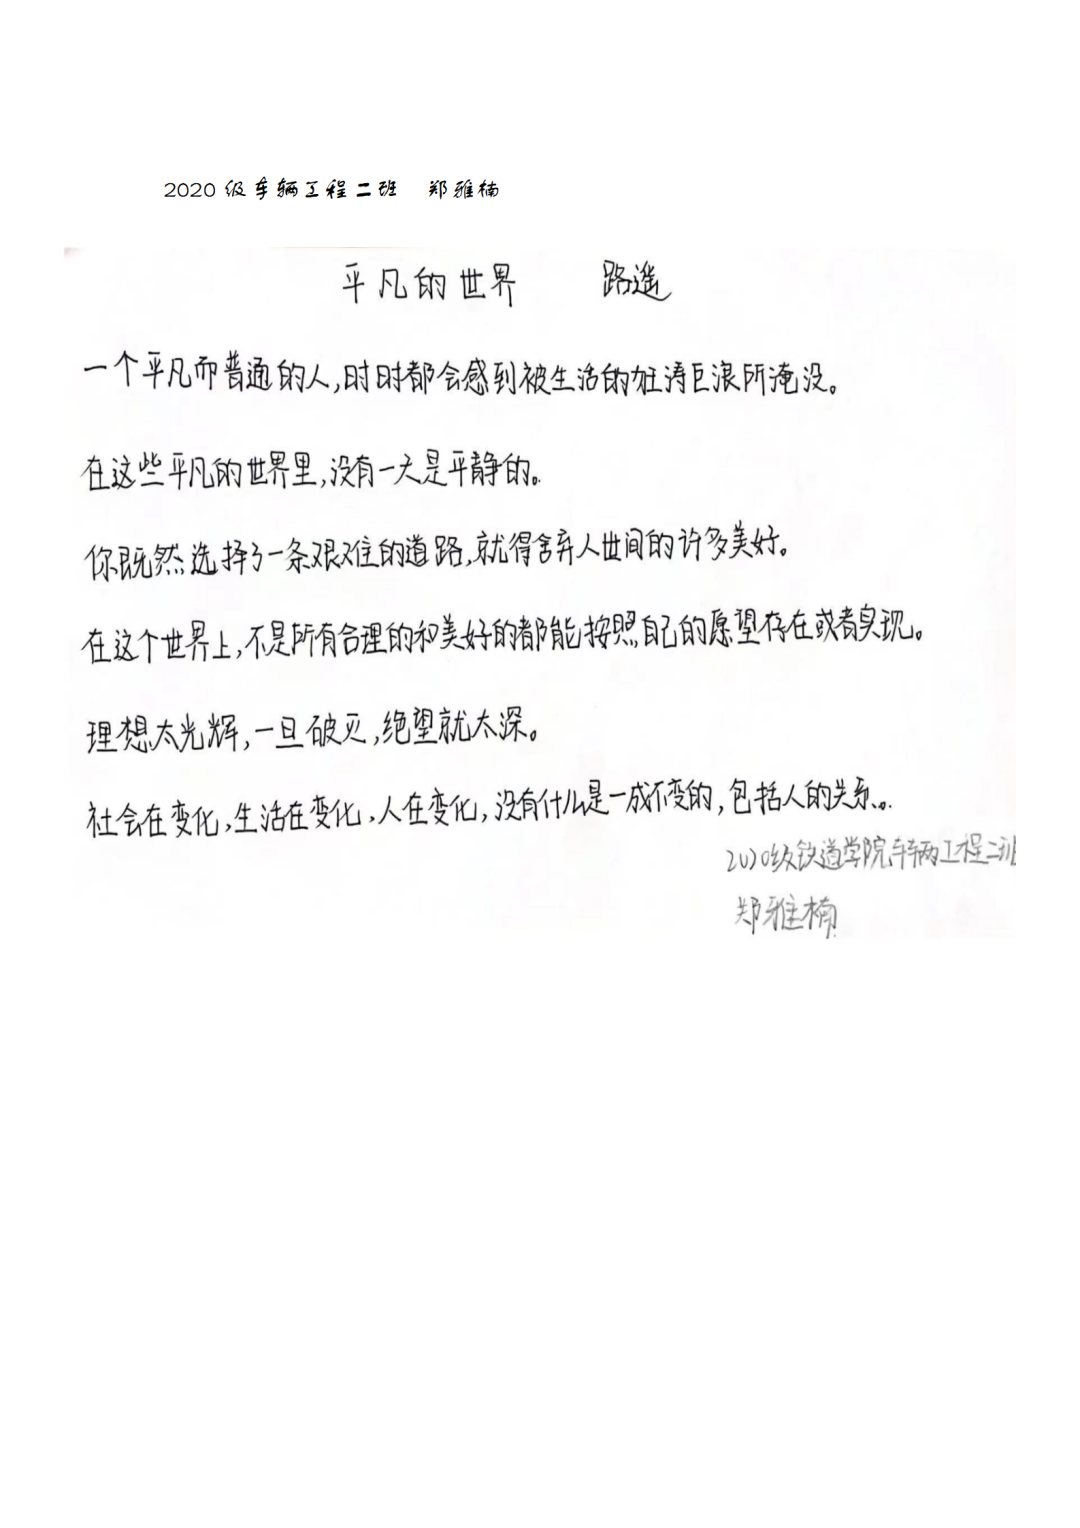 2020级车辆工程二班 郑雅楠
平凡的世界 路遥
一个平凡而普通的人,时时都会感到被生活的狂涛巨浪所淹没。
在这些平凡的世界里,没有一天是平静的。
你既然选择了一条艰难的道路,就得舍弃人世间的许多美好。
在这个世界上,不是所有合理的和美好的都能按照自己的愿望存在或者实现。
理想太光辉,一旦破灭,绝望就太深。
社会在变化,生活在变化,人在变化,没有什么是一成不变的,包括人的关系。
2020级铁道学院车辆工程二班
郑雅楠